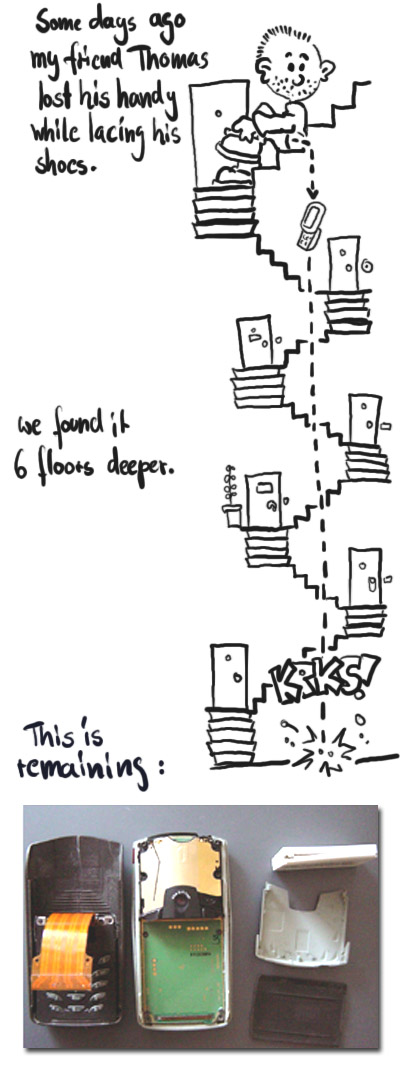 Some days ago
my friend Thomas
lost his handy
while lacing his
shoes.
we found it
6 floors deeper.
KRKS!
This is
remaining: